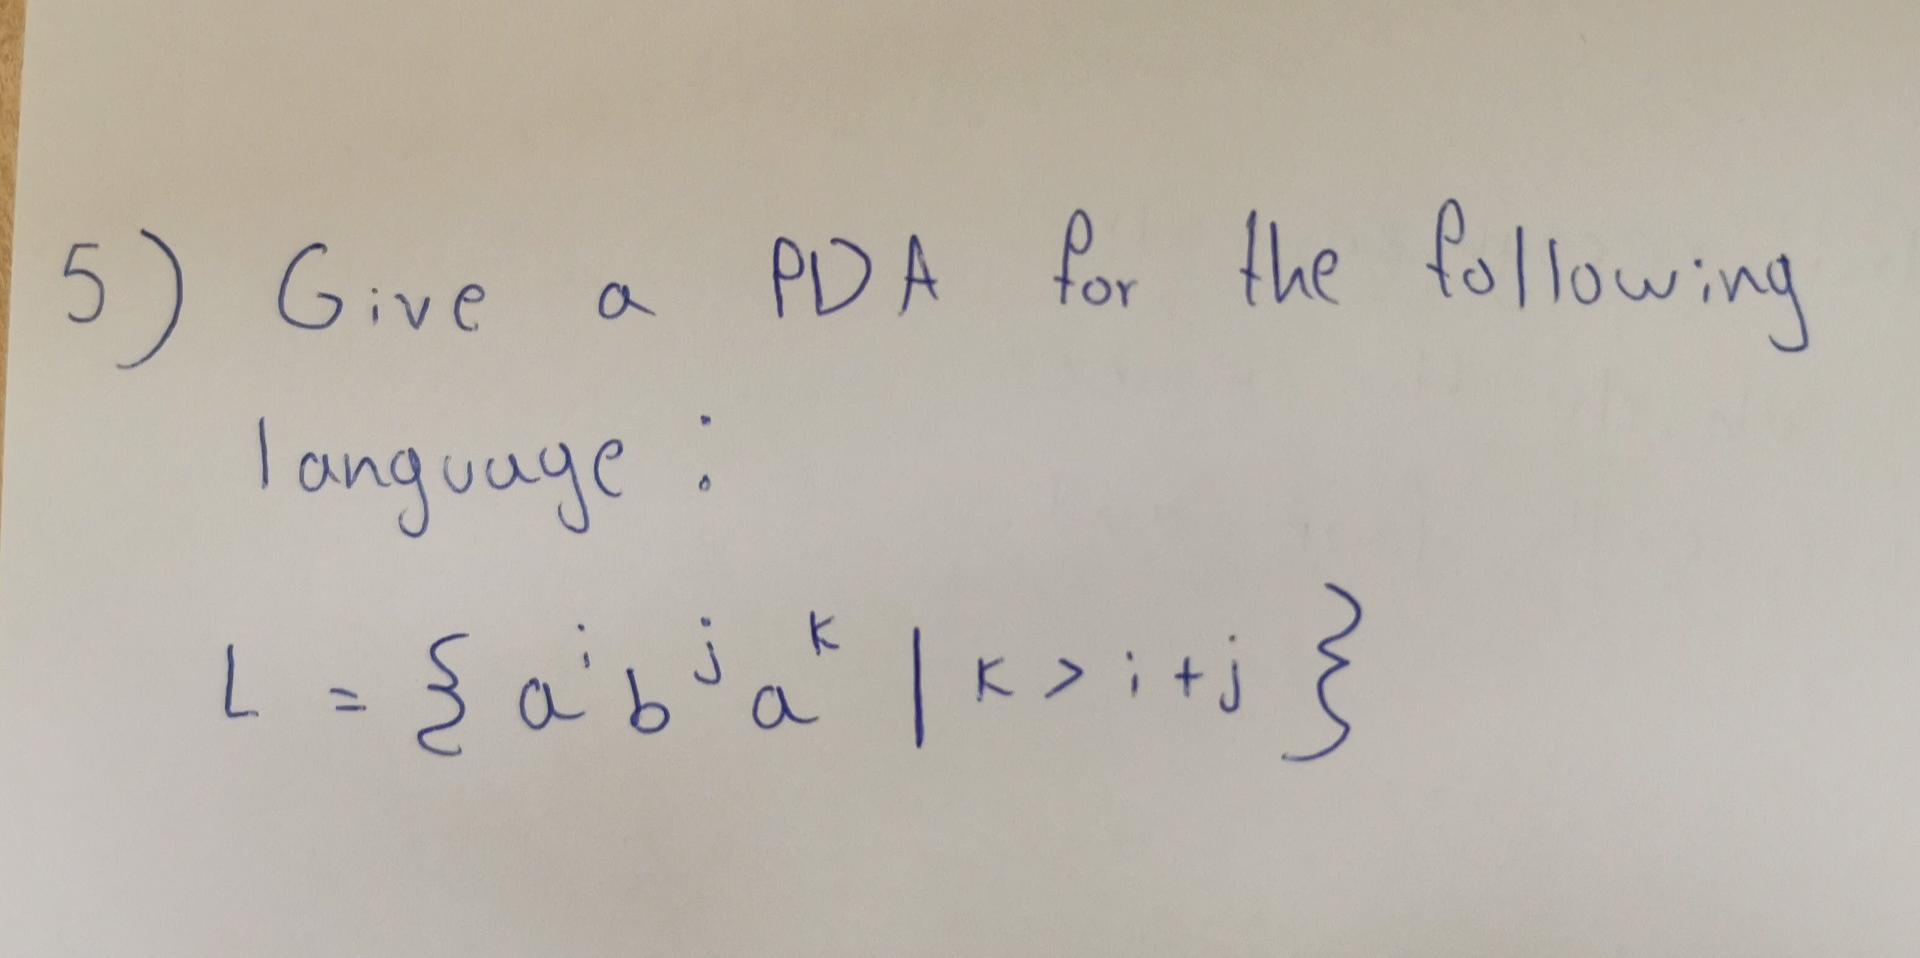 5) Give a PDA for the following
language :
L = { aⁱ bʲ aᵏ | k > i + j }